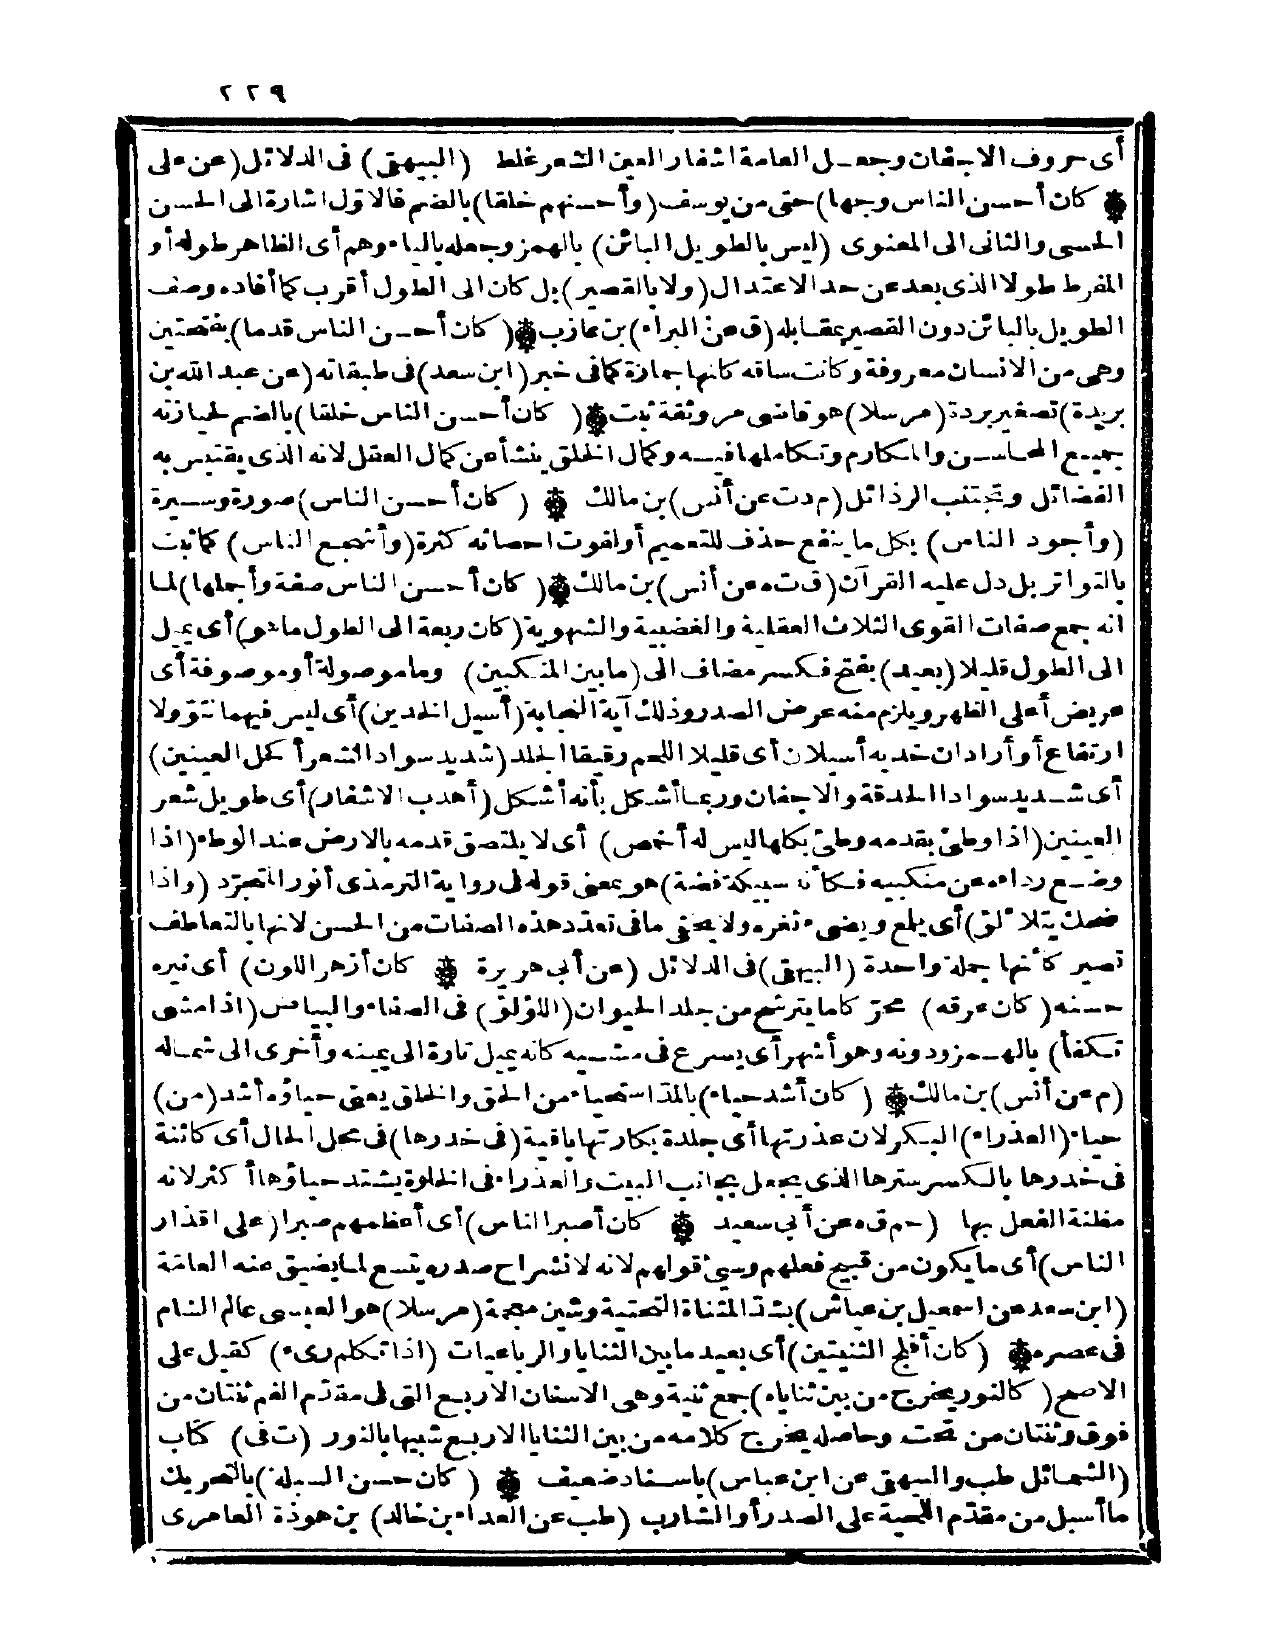 ٢٢٩
أى حروف الاجفان وجعل العامة اشفار العين الشعر غلط (البيهقى) فى الدلائل (عن على
❊ كان أحسن الناس وجها) حتى من يوسف (وأحسنهم خلقا) بالضم فالاول اشارة الى الحسن
الحسى والثانى الى المعنوى (ليس بالطويل البائن) بالهمز وجعله بالياء وهم أى الظاهر طوله أو
المفرط طولا الذى بعد عن حد الاعتدال (ولا بالقصير) بل كان الى الطول أقرب كما أفاده وصف
الطويل بالبائن دون القصير بمقابله (ق عن البراء) بن عازب ❊ (كان أحسن الناس قدما) بفتحتين
وهى من الانسان معروفة وكانت ساقه كانها جمارة كما فى خبر (ابن سعد) فى طبقاته (عن عبد الله بن
بريدة) تصغير بردة (مرسلا) هو قاضى مرو ثقة ثبت ❊ (كان أحسن الناس خلقا) بالضم لحيازته
جميع المحاسن والمكارم وتكاملها فيه وكمال الخلق ينشأ عن كمال العقل لانه الذى يقتبس به
الفضائل وتجتنب الرذائل (م د ت عن أنس) بن مالك ❊ (كان أحسن الناس) صورة وسيرة
(وأجود الناس) بكل ما ينفع حذف للتعميم أو لفوت احصائه كثرة (وأشجع الناس) كما ثبت
بالتواتر بل دل عليه القرآن (ق ت ه عن أنس) بن مالك ❊ (كان أحسن الناس صفة وأجملها) لما
انه جمع صفات القوى الثلاث العقلية والغضبية والشهوية (كان ربعة الى الطول ما هو) أى يميل
الى الطول قليلا (بعيد) بفتح فكسر مضاف الى (ما بين المنكبين) وما موصولة أو موصوفة أى
عريض أعلى الظهر ويلزم منه عرض الصدر وذلك آية النجابة (أسيل الخدين) أى ليس فيهما نتوؤ ولا
ارتفاع أو أراد ان خديه أسيلان أى قليلا اللحم رقيقا الجلد (شديد سواد الشعر أكحل العينين)
أى شديد سواد الحدقة والاجفان وربما أشكل بأنه أشكل (أهدب الاشفار) أى طويل شعر
العينين (اذا وطئ بقدمه وطئ بكلها ليس له أخمص) أى لا يلتصق قدمه بالارض عند الوطء (اذا
وضع رداءه عن منكبيه فكأنه سبيكة فضة) هو بمعنى قوله فى رواية الترمذى أنور المتجرد (واذا
ضحك يتلألؤ) أى يلمع ويضىء ثغره ولا يخفى ما فى تعدد هذه الصفات من الحسن لانها بالتعاطف
تصير كأنها جملة واحدة (البيهقى) فى الدلائل (عن أبى هريرة ❊ كان أزهر اللون) أى نيره
حسنه (كان عرقه) محرّ كا ما يترشح من جلد الحيوان (اللؤلؤ) فى الصفاء والبياض (اذا مشى
تكفأ) بالهمز ودونه وهو أشهر أى يسرع فى مشيه كانه يميل تارة الى يمينه وأخرى الى شماله
(م عن أنس) بن مالك ❊ (كان أشد حياء) بالمد استحياء من الحق والخلق يعنى حياؤه أشد (من)
حياء (العذراء) البكر لان عذرتها أى جلدة بكارتها باقية (فى خدرها) فى محل الحال أى كائنة
فى خدرها بالكسر سترها الذى يجعل بجانب البيت والعذراء فى الخلوة يشتد حياؤها أكثر لانه
مظنة الفعل بها (حم ق ه عن أبى سعيد ❊ كان أصبر الناس) أى أعظمهم صبرا (على اقذار
الناس) أى ما يكون من قبيح فعلهم وسئ قولهم لانه لانشراح صدره يتسع لما يضيق عنه العامّة
(ابن سعد عن اسمعيل بن عياش) بشدّ المثناة التحتية وشين معجمة (مرسلا) هو العبسى عالم الشام
فى عصره ❊ (كان أفلج الثنيتين) أى بعيد ما بين الثنايا والرباعيات (اذا تكلم رىء) كقيل على
الاصح (كالنور يخرج من بين ثناياه) جمع ثنية وهى الاسنان الاربع التى فى مقدّم الفم ثنتان من
فوق وثنتان من تحت وحاصله يخرج كلامه من بين الثنايا الاربع شبيها بالنور (ت فى) كتاب
(الشمائل طب والبيهقى عن ابن عباس) باسناد ضعيف ❊ (كان حسن السبلة) بالتحريك
ما أسبل من مقدّم اللحية على الصدر أو الشارب (طب عن العداء بن خالد) بن هوذة العامرى